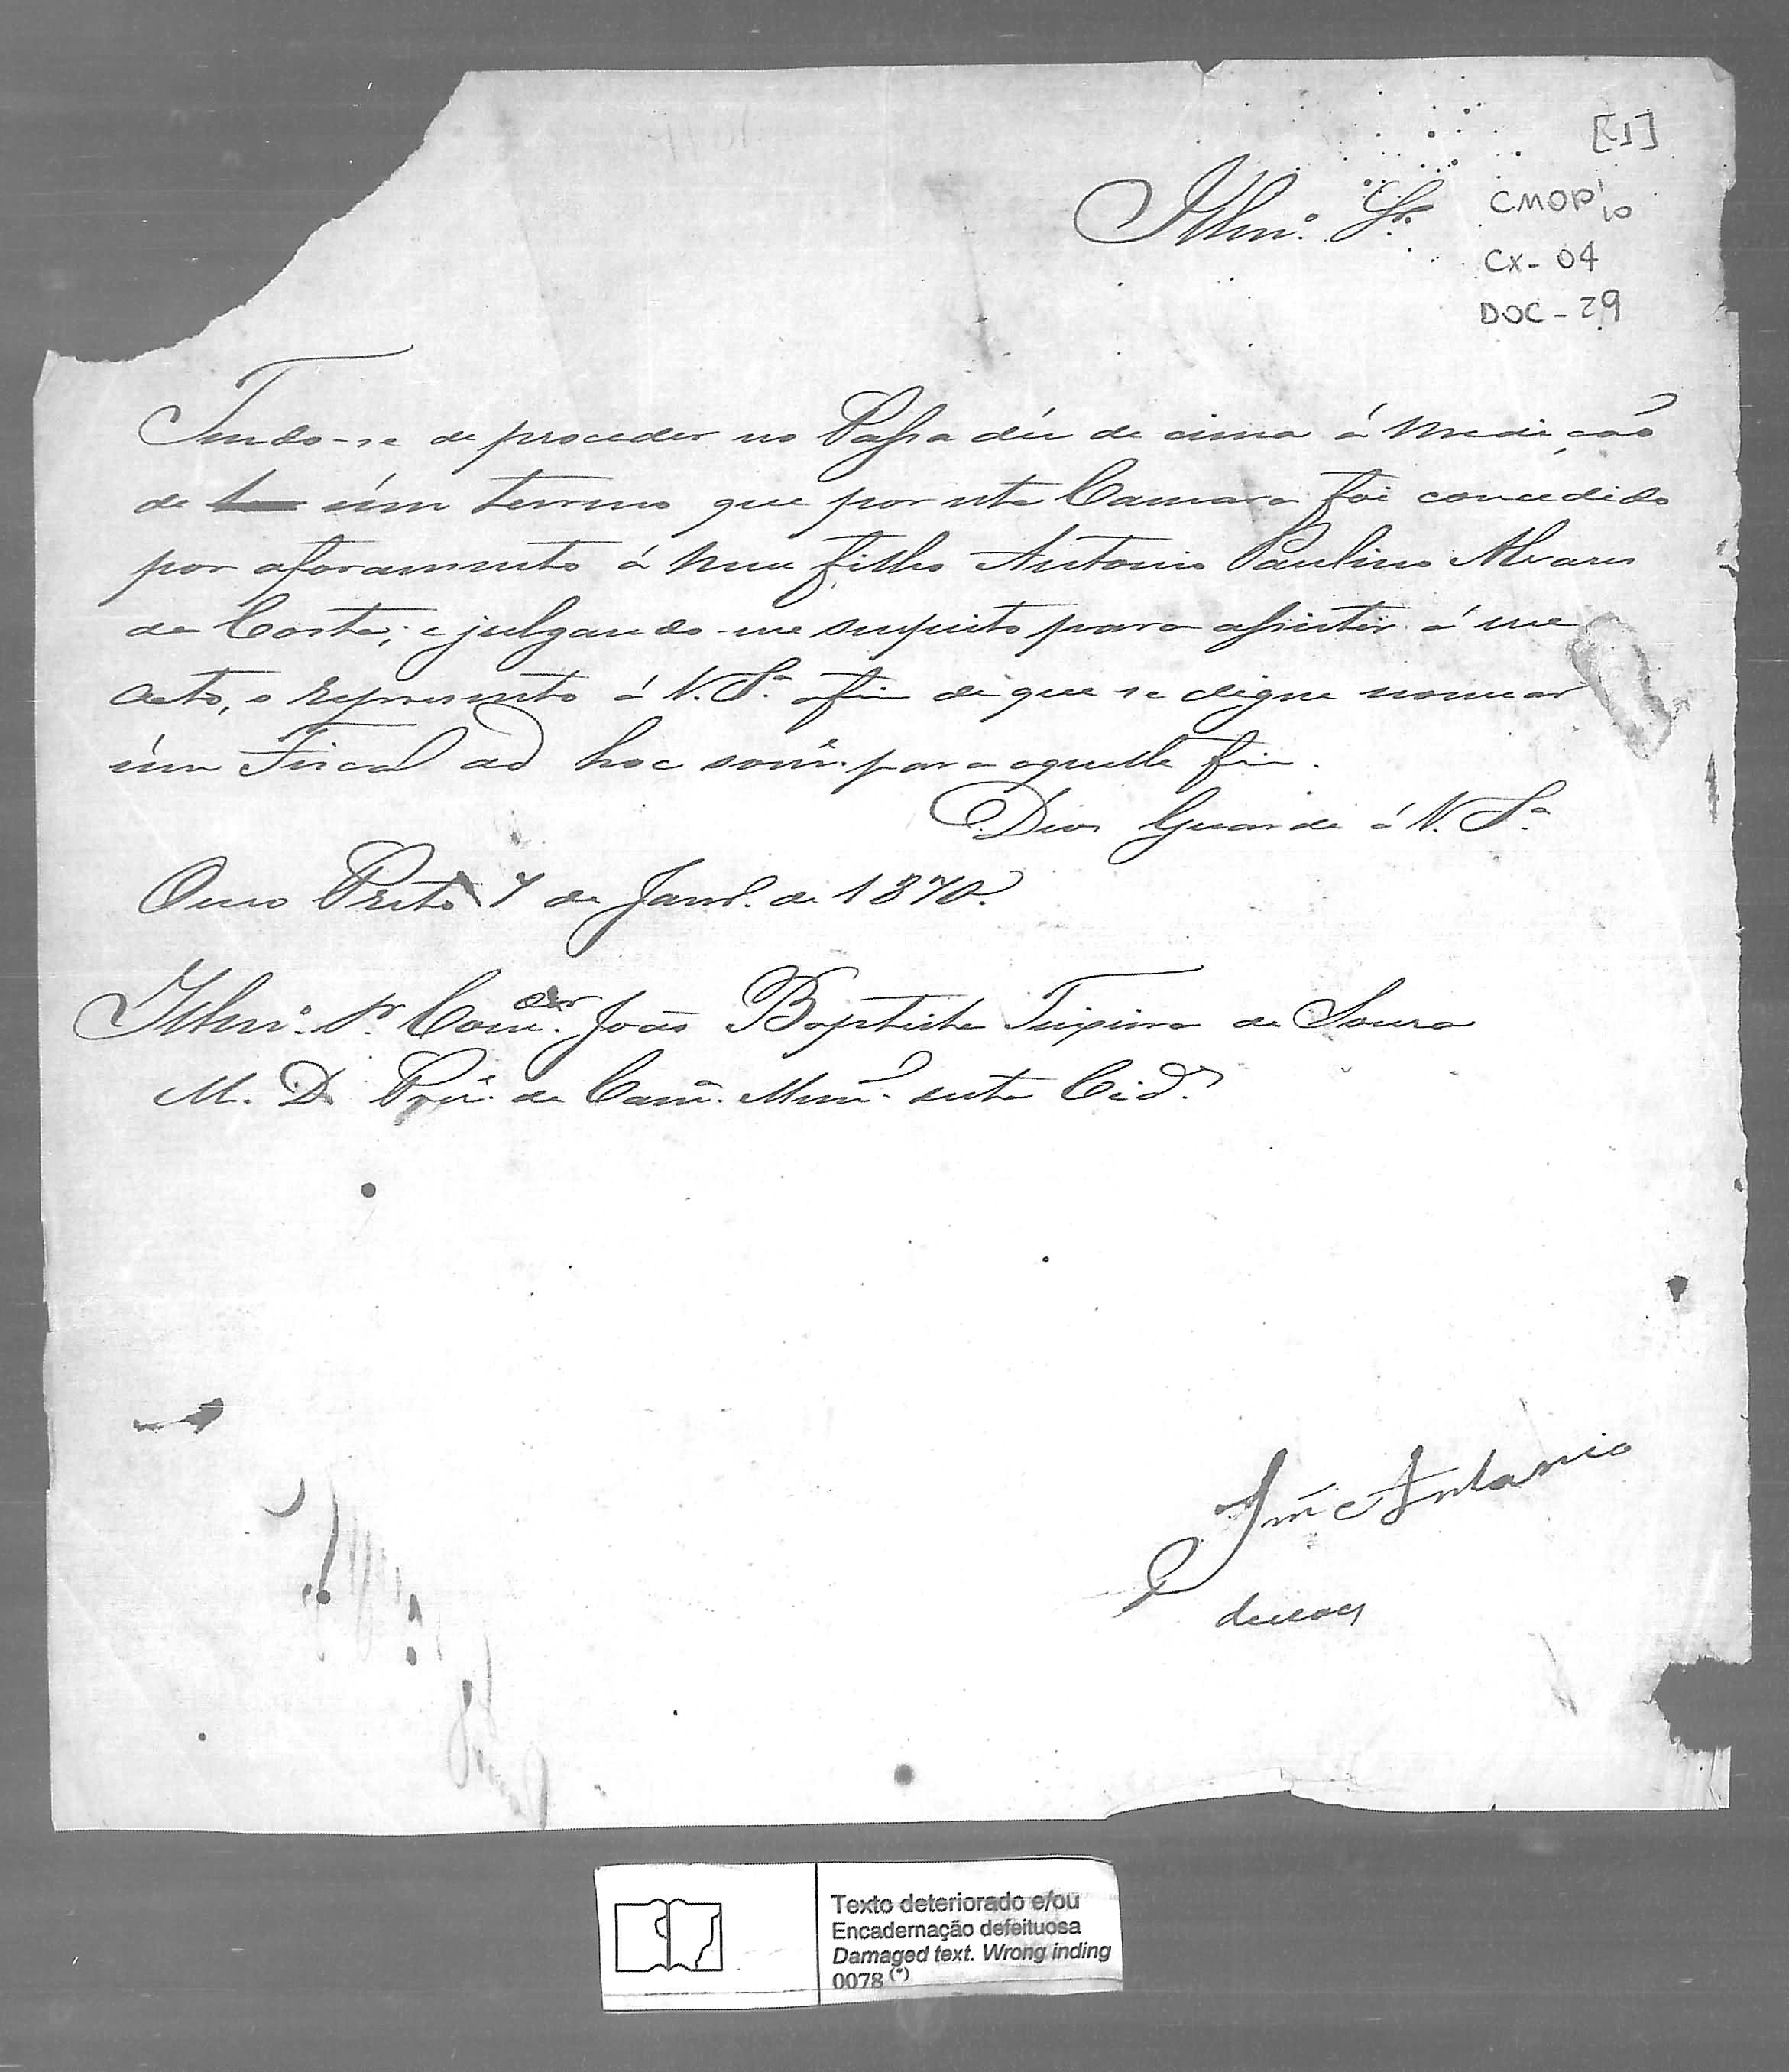 [1]
Illmº. Sr.
CMOP 10
CX - 04
DOC - 29
Tendo-se de proceder no Passa dés de cima á medição
de úm terreno que por esta Camara foi concedido
por aforamento á meu filho Antonio Paulino Alvares
da Costa; e julgando-me suspeito para assistir á esse
acto, o represento á V. Sª. afim de que se digne nomear
úm Fiscal ad hoc somᵉ. para aquelle fim.
Deos Guarde á V. Sª
Ouro Preto 7 de Janrº. de 1870.
Illmº. Sr. Comdor. João Baptista Teixeira de Souza
M. D. Preᵉ. da Camª. Munˡ. desta Cidᵉ.
José Antonio
Texto deteriorado e/ou
Encadernação defeituosa
Damaged text. Wrong inding
0078 (*)